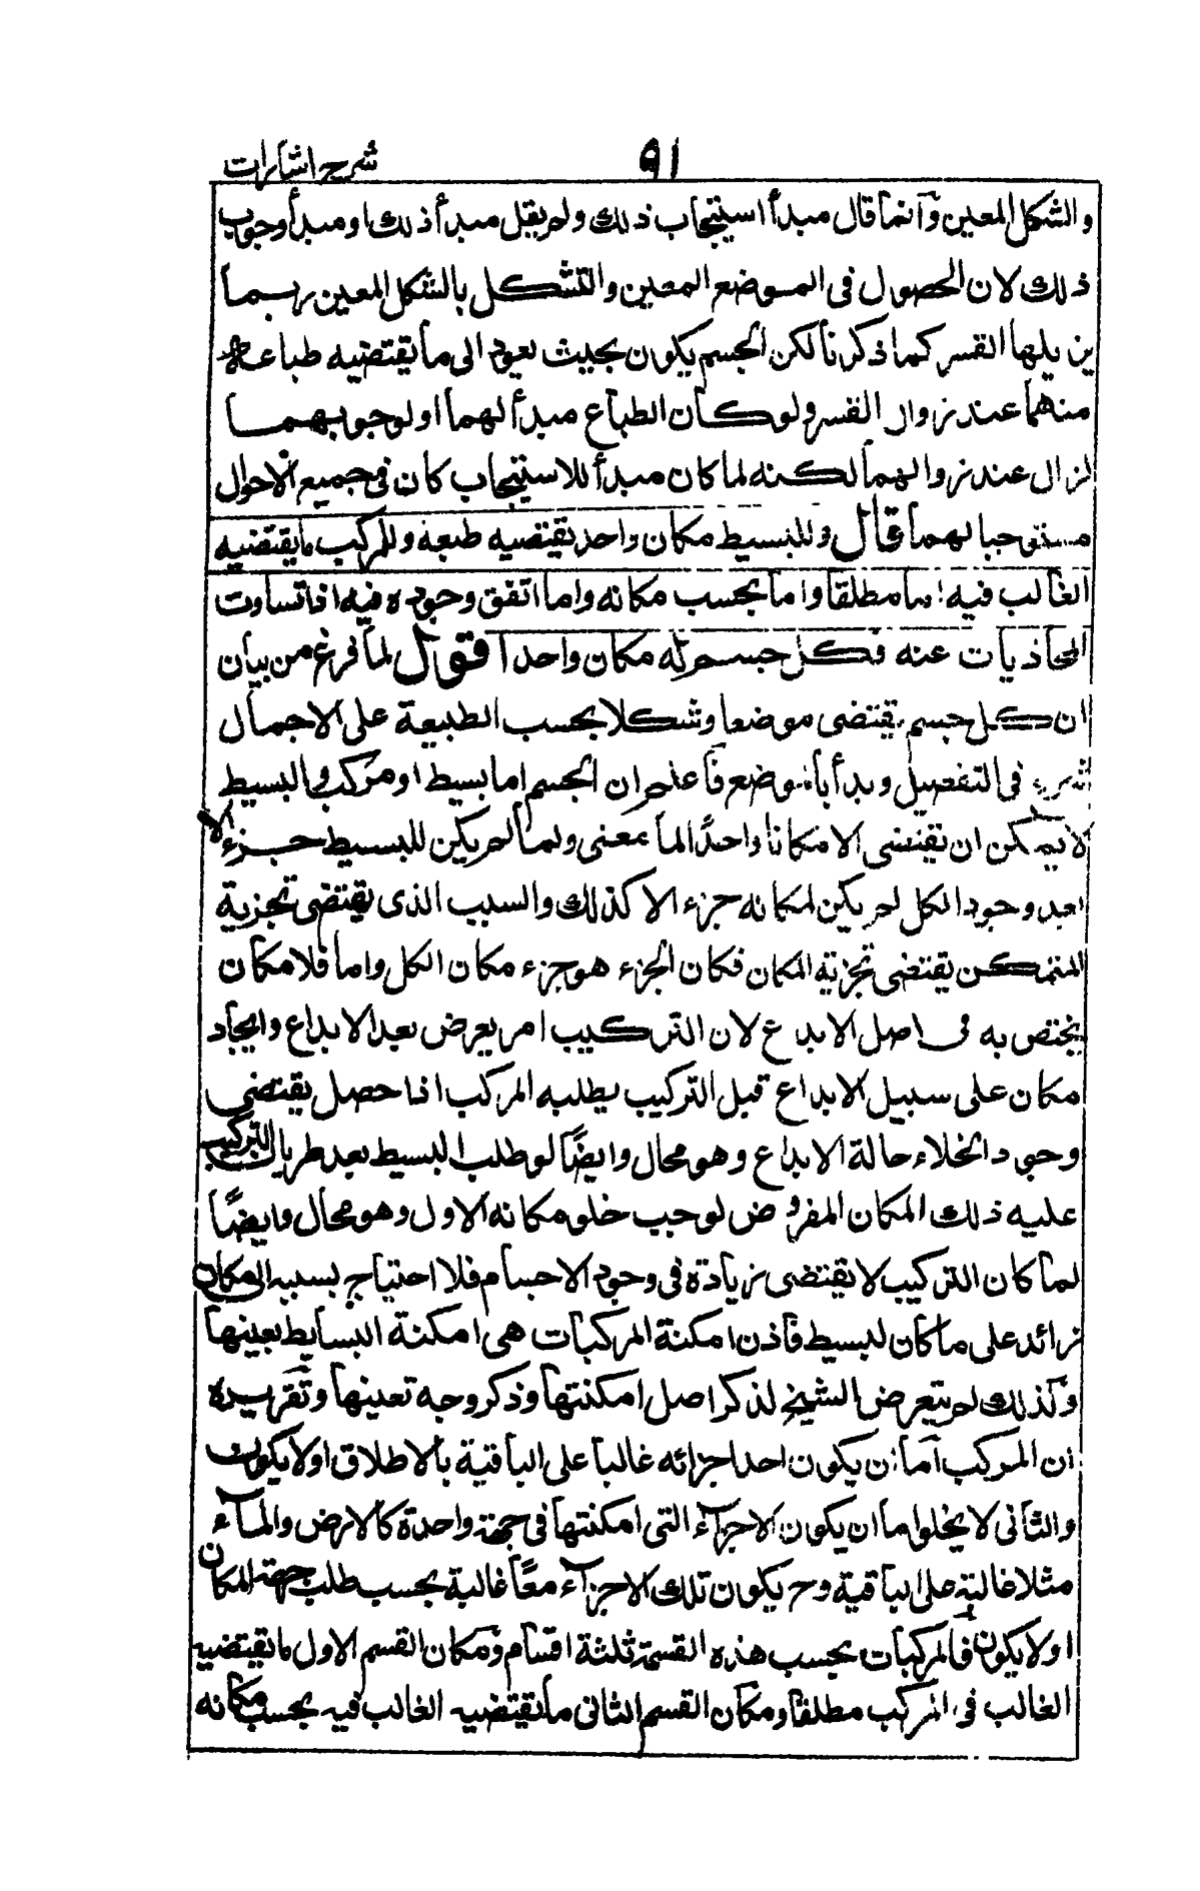 ٩١
شرح اشارات
والشكل المعين وانما قال مبدأ استيجاب ذلك ولم يقل مبدأ ذلك او مبدأ وجوب
ذلك لان الحصول فى الموضع المعين والتشكل بالشكل المعين ربما
يزيلها القسر كما ذكرنا لكن الجسم يكون بحيث يعود الى ما يقتضيه طباعه
منهما عند زوال القسر ولو كان الطباع مبدأ لهما او لوجوبهما
لزال عند زوالهما لكنه لما كان مبدأ للاستيجاب كان فى جميع الاحوال
مستوجبا لهما قال وللبسيط مكان واحد يقتضيه طبعه وللمركب ما يقتضيه
الغالب فيه اما مطلقا واما بحسب مكانه واما اتفق وجوده فيه اذا تساوت
المجاذيات عنه فكل جسم له مكان واحد اقول لما فرغ من بيان
ان كل جسم يقتضى موضعا وشكلا بحسب الطبيعة على الاجمال
شرع فى التفصيل وبدأ بالموضع فاعلم ان الجسم اما بسيط او مركب والبسيط
لا يمكن ان يقتضى الا مكانا واحدا لما معنى ولما لم يكن للبسيط جزء الا
بعد وجود الكل لم يكن لمكانه جزء الا كذلك والسبب الذى يقتضى تجزية
المتمكن يقتضى تجزية المكان فكان الجزء هو جزء مكان الكل واما فلا مكان
يختص به فى اصل الابداع لان التركيب امر يعرض بعد الابداع وايجاد
مكان على سبيل الابداع قبل التركيب يطلبه المركب اذا حصل يقتضى
وجود الخلاء حالة الابداع وهو محال وايضًا لو طلب البسيط بعد طريان التركيب
عليه ذلك المكان المفروض لوجب خلو مكانه الاول وهو محال وايضًا
لما كان التركيب لا يقتضى زيادة فى وجود الاجسام فلا احتياج بسببه الى مكان
زائد على ما كان لبسيط فاذن امكنة المركبات هى امكنة البسايط بعينها
وكذلك لم يتعرض الشيخ لذكر اصل امكنتها وذكر وجه تعينها وتقريره
ان المركب اما ان يكون احد اجزائه غالبا على الباقية بالاطلاق او لا يكون
والثانى لا يخلو اما ان يكون الاجزآء التى امكنتها فى جهة واحدة كالارض والمآء
مثلا غالبة على الباقية وح يكون تلك الاجزآء معًا غالبة بحسب طلب جهة المكان
او لا يكون فالمركبات بحسب هذه القسمة ثلثة اقسام ومكان القسم الاول ما يقتضيه
الغالب فى المركب مطلقا ومكان القسم الثانى ما يقتضيه الغالب فيه بحسب مكانه